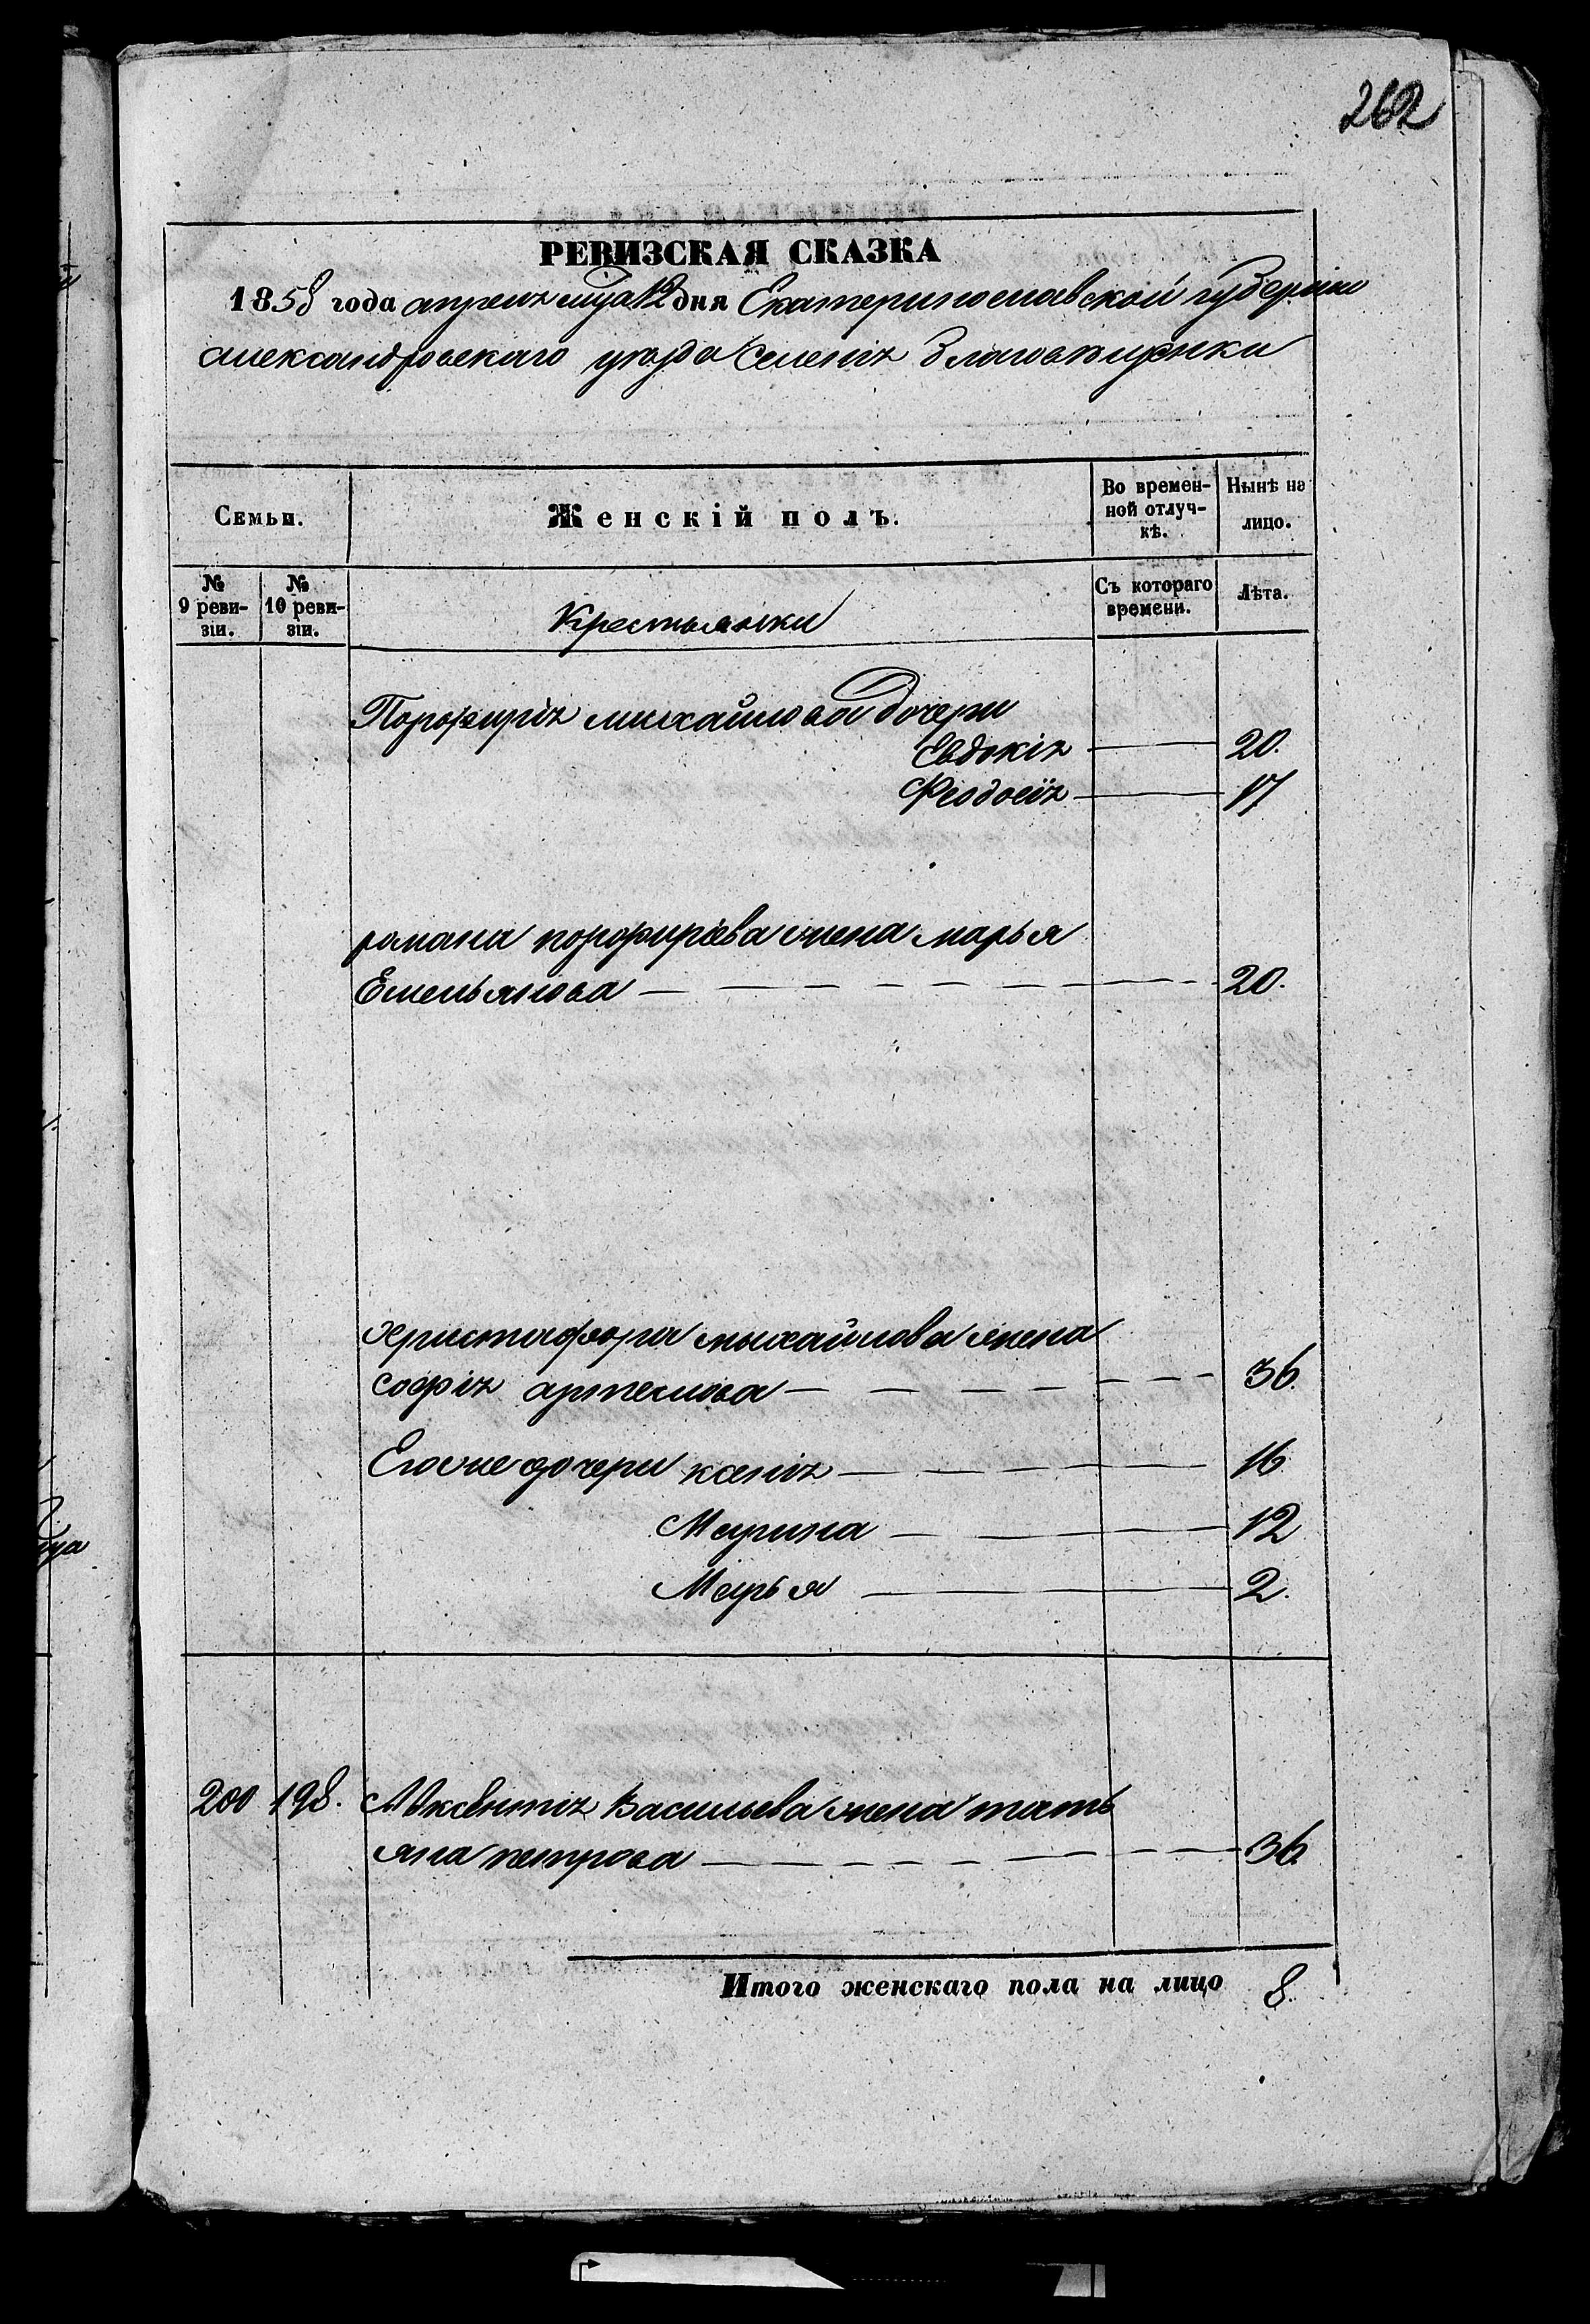 262
РЕВИЗСКАЯ СКАЗКА
1858 года апреля мца 12 дня Екатеринославской губерніи
александровскаго уезда Селенія
Семьи.
Женскій полъ.
Во времен-
ной отлуч-
кѣ.
Нынѣ на
лицо.
№
9 реви-
зіи.
№
10 реви-
зіи.
Крестьянки
Съ котораго
времени.
Лѣта.
Порфирія михайлова дочери
Евдокія 20.
Феодосія 17
романа порфиріева жена марья
Емельянова 20.
христафора михайлова жена
софія артемова 36.
Егоже дочери ксенія 16
Марина 12
Марья 2.
200 198. Авксентія Васильева жена тать
яна петрова 36.
Итого женскаго пола на лицо 8.